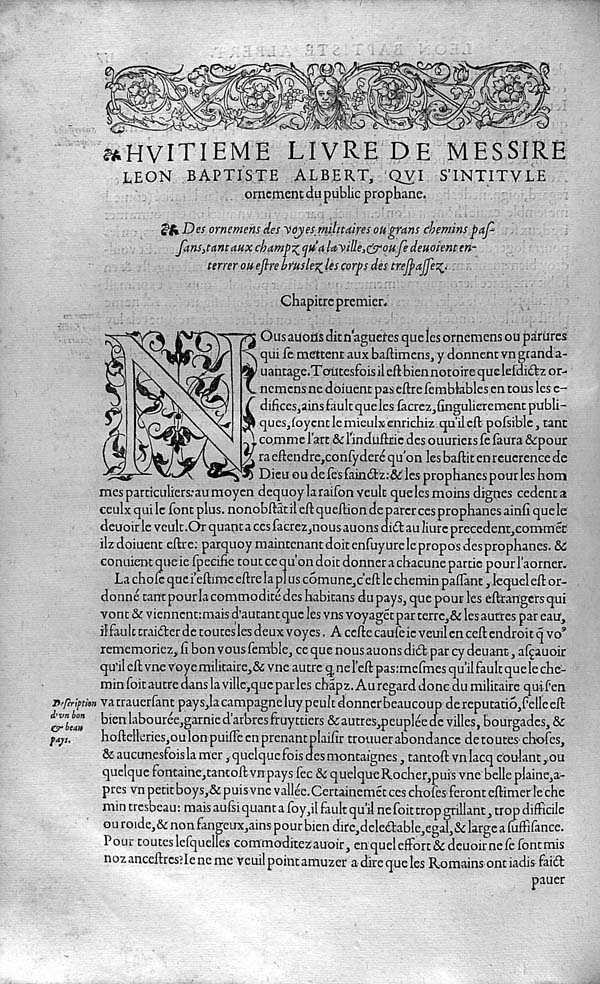 ❧ HVITIEME LIVRE DE MESSIRE
LEON BAPTISTE ALBERT, QVI S'INTITVLE
ornement du public prophane.
❧ Des ornemens des voyes militaires ou grans chemins paſ-
ſans, tant aux champz qu'a la ville, & ou ſe deuoient en-
terrer ou eſtre bruslez les corps des treſpaſſez.
Chapitre premier.
NOus auons dit n'agueres que les ornemens ou parures
qui ſe mettent aux baſtimens, y donnent vn grand a-
uantage. Toutesfois il eſt bien notoire que leſdictz or-
nemens ne doiuent pas eſtre ſemblables en tous les e-
difices, ains fault que les ſacrez, ſingulierement publi-
ques, ſoyent le mieulx enrichiz qu'il eſt poſsible, tant
comme l'art & l'induſtrie des ouuriers ſe ſaura & pour
ra eſtendre, conſyderé qu'on les baſtit en reuerence de
Dieu ou de ſes ſainctz: & les prophanes pour les hom
mes particuliers: au moyen dequoy la raiſon veult que les moins dignes cedent a
ceulx qui le ſont plus. nonobſtāt il eſt queſtion de parer ces prophanes ainſi que le
deuoir le veult. Or quant a ces ſacrez, nous auons dict au liure precedent, commēt
ilz doiuent eſtre: parquoy maintenant doit enſuyure le propos des prophanes. &
conuient que ie ſpecifie tout ce qu'on doit donner a chacune partie pour l'aorner.
La choſe que i'eſtime eſtre la plus cōmune, c'eſt le chemin paſſant, lequel eſt or-
donné tant pour la commodité des habitans du pays, que pour les eſtrangers qui
vont & viennent: mais d'autant que les vns voyagēt par terre, & les autres par eau,
il fault traicter de toutes les deux voyes. A ceſte cauſe ie veuil en ceſt endroit q̄ voꝰ
rememoriez, ſi bon vous ſemble, ce que nous auons dict par cy deuant, aſçauoir
qu'il eſt vne voye militaire, & vne autre q̄ ne l'eſt pas: meſmes qu'il fault que le che-
min ſoit autre dans la ville, que par les chāpz. Au regard donc du militaire qui ſ'en
va trauerſant pays, la campagne luy peult donner beaucoup de reputatiō, ſ'elle eſt
bien labourée, garnie d'arbres fruyttiers & autres, peuplée de villes, bourgades, &
hoſtelleries, ou lon puiſſe en prenant plaiſir trouuer abondance de toutes choſes,
& aucunesfois la mer, quelque fois des montaignes, tantoſt vn lacq coulant, ou
quelque fontaine, tantoſt vn pays ſec & quelque Rocher, puis vne belle plaine, a-
pres vn petit boys, & puis vne vallée. Certainemēt ces choſes feront eſtimer le che
min tresbeau: mais auſsi quant a ſoy, il fault qu'il ne ſoit trop grillant, trop difficile
ou roide, & non fangeux, ains pour bien dire, delectable, egal, & large a ſuffiſance.
Pour toutes leſquelles commoditez auoir, en quel effort & deuoir ne ſe ſont mis
noz anceſtres? Ie ne me veuil point amuzer a dire que les Romains ont iadis faict
pauer
Description
d'vn bon
& beau
pays.